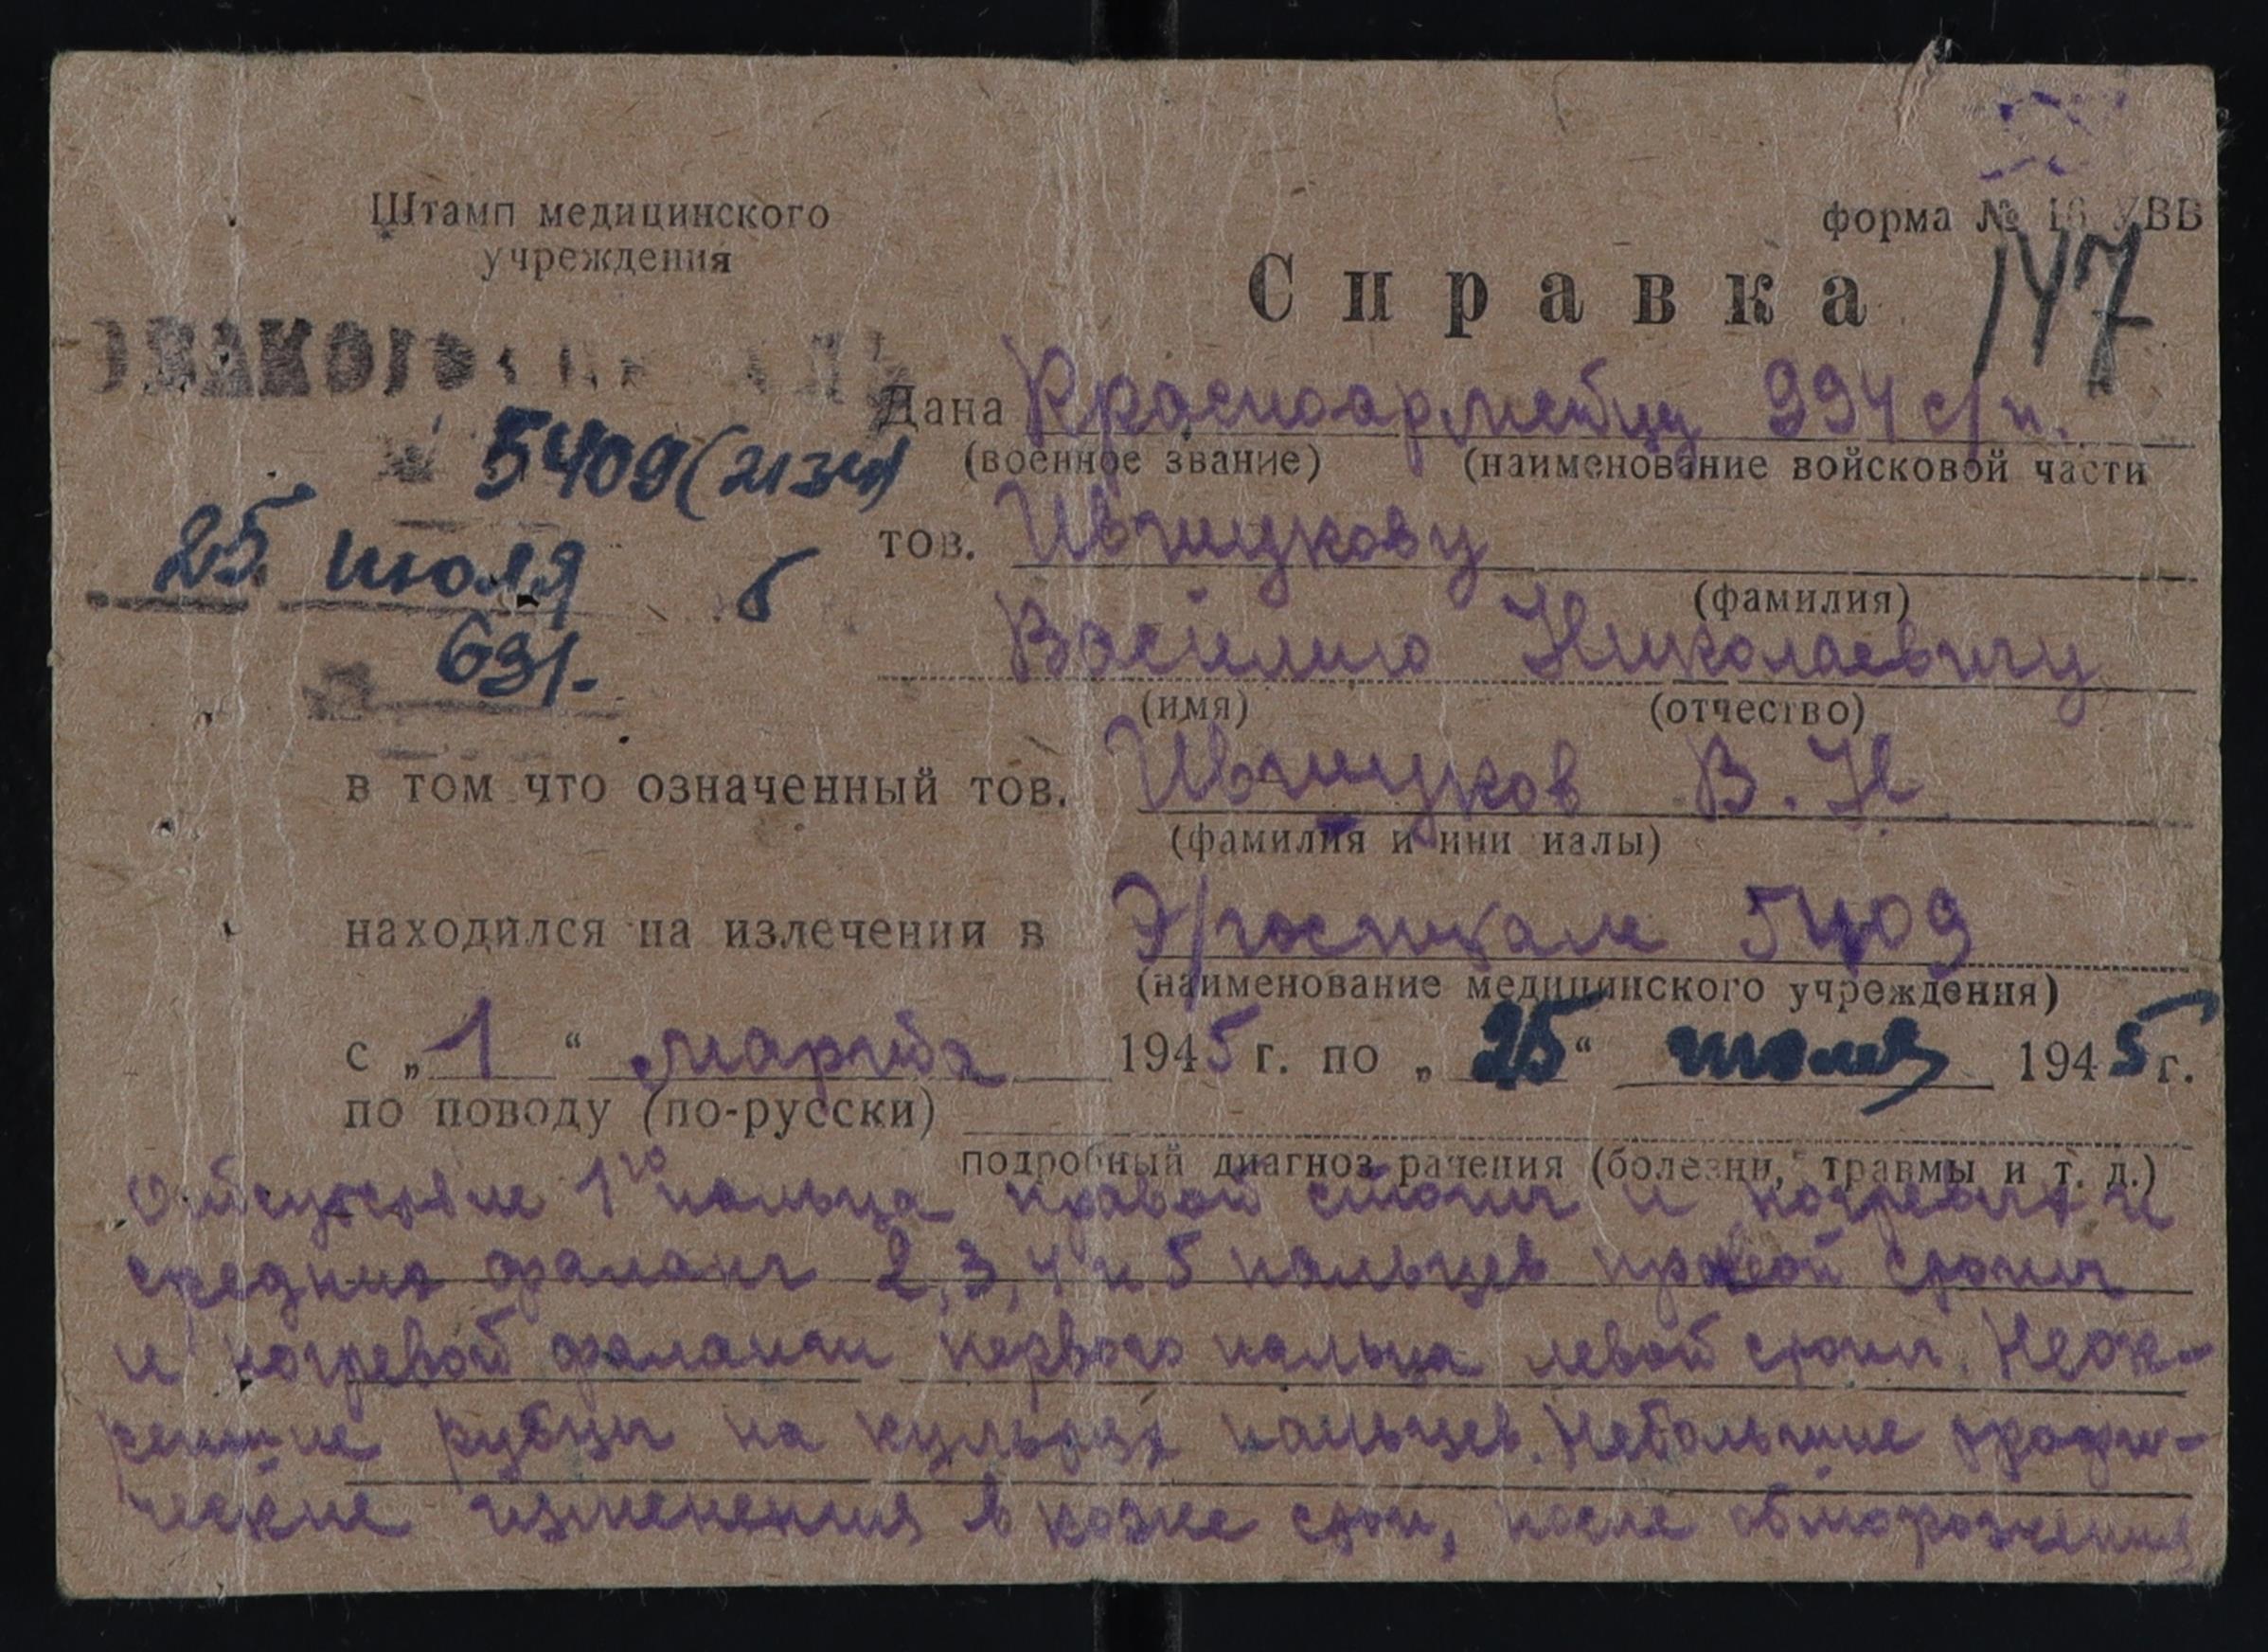 форма № 16 УВВ
147
Штамп медицинского
учреждения
Справка
Дана Красноармейцу 994 с/п.
(военное звание) (наименование войсковой части
5409 (2134)
25 июля 5
691.
тов.
(фамилия)
Василию Николаевичу
(имя) (отчество)
в том что означенный тов. В. Н
(фамилия и ини иалы)
находился на излечении в Э/госпитале 5409
(наименование медицинского учреждения)
с „ 1 “ марта 1945 г. по „ 25 “ июля 1945 г.
по поводу (по-русски)
подробный диагноз ранения (болезни, травмы и т. д.)
Отсутствие 1го пальца правой стопы и ногтевых и
средних фаланг 2, 3, 4 и 5 пальцев правой стопы
и ногтевой фаланги первого пальца левой стопы. Неок-
репшие рубцы на культях пальцев. Небольшие трофи-
ческие изменения в коже стоп, после обморожения